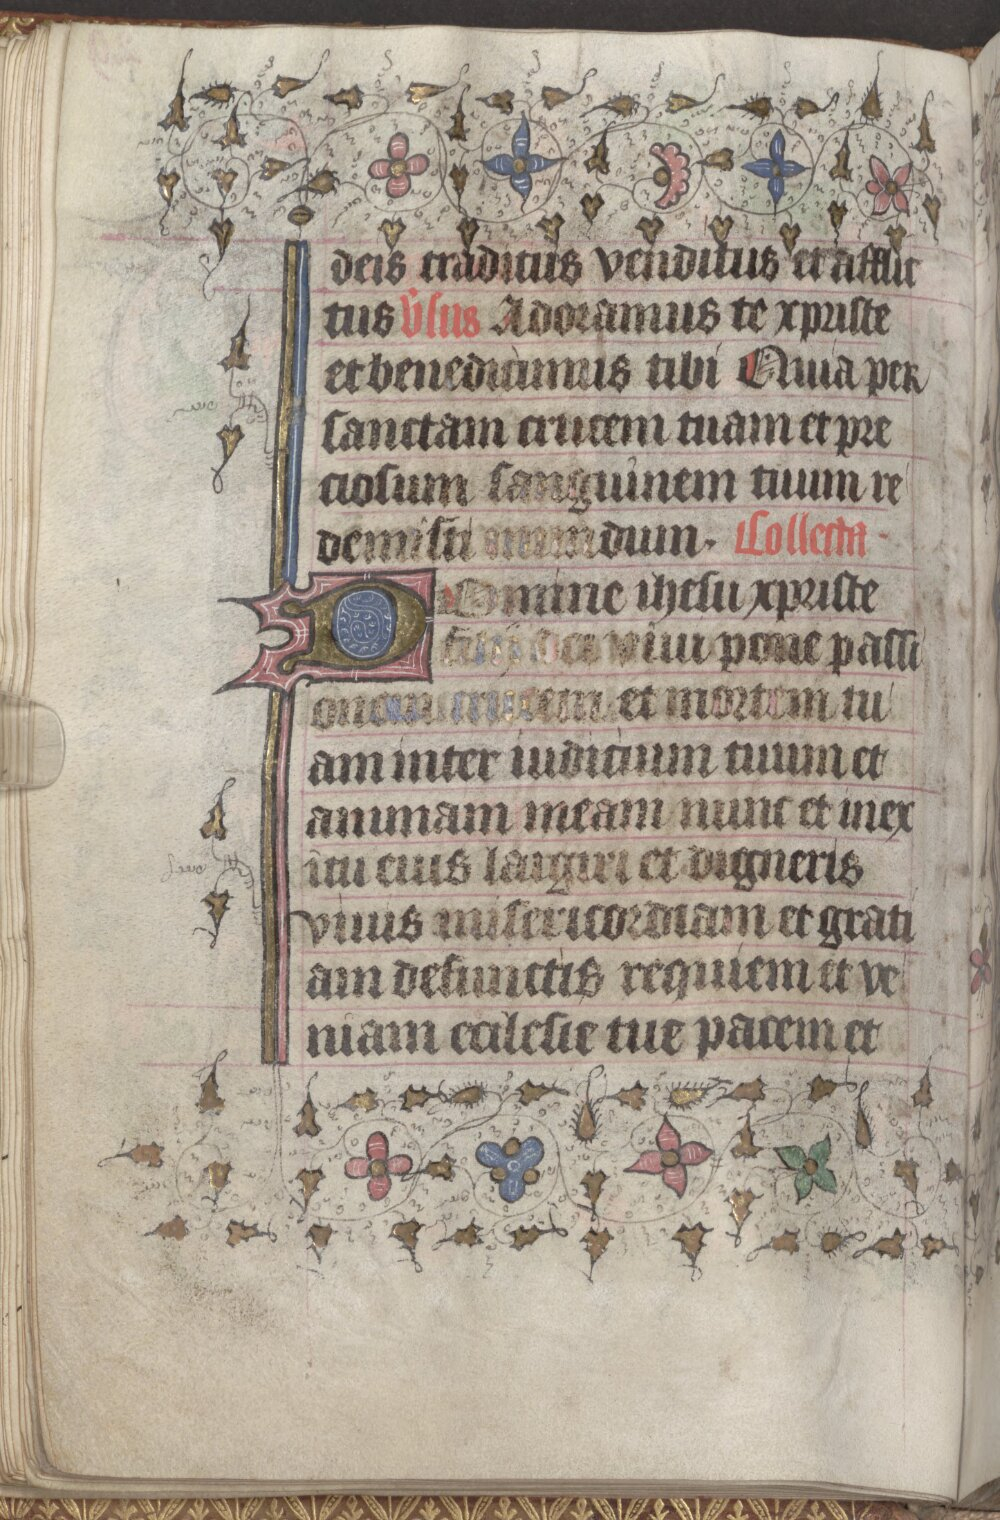 deis traditus venditus et afflic
tus v̄sus Adoramus te xpriste
et benedicimus tibi Quia per
sanctam crucem tuam et pre
ciosum sanguinem tuum re
demisti mundum. Collecta
Domine ihesu xpriste
filij dei viui pone passi
onem crucem et mortem tu
am inter iudicium tuum et
animam meam nunc et in ex
itu eius largiri et digneris
viuis misericordiam et grati
am defunctis requiem et ve
niam ecclesie tue pacem et